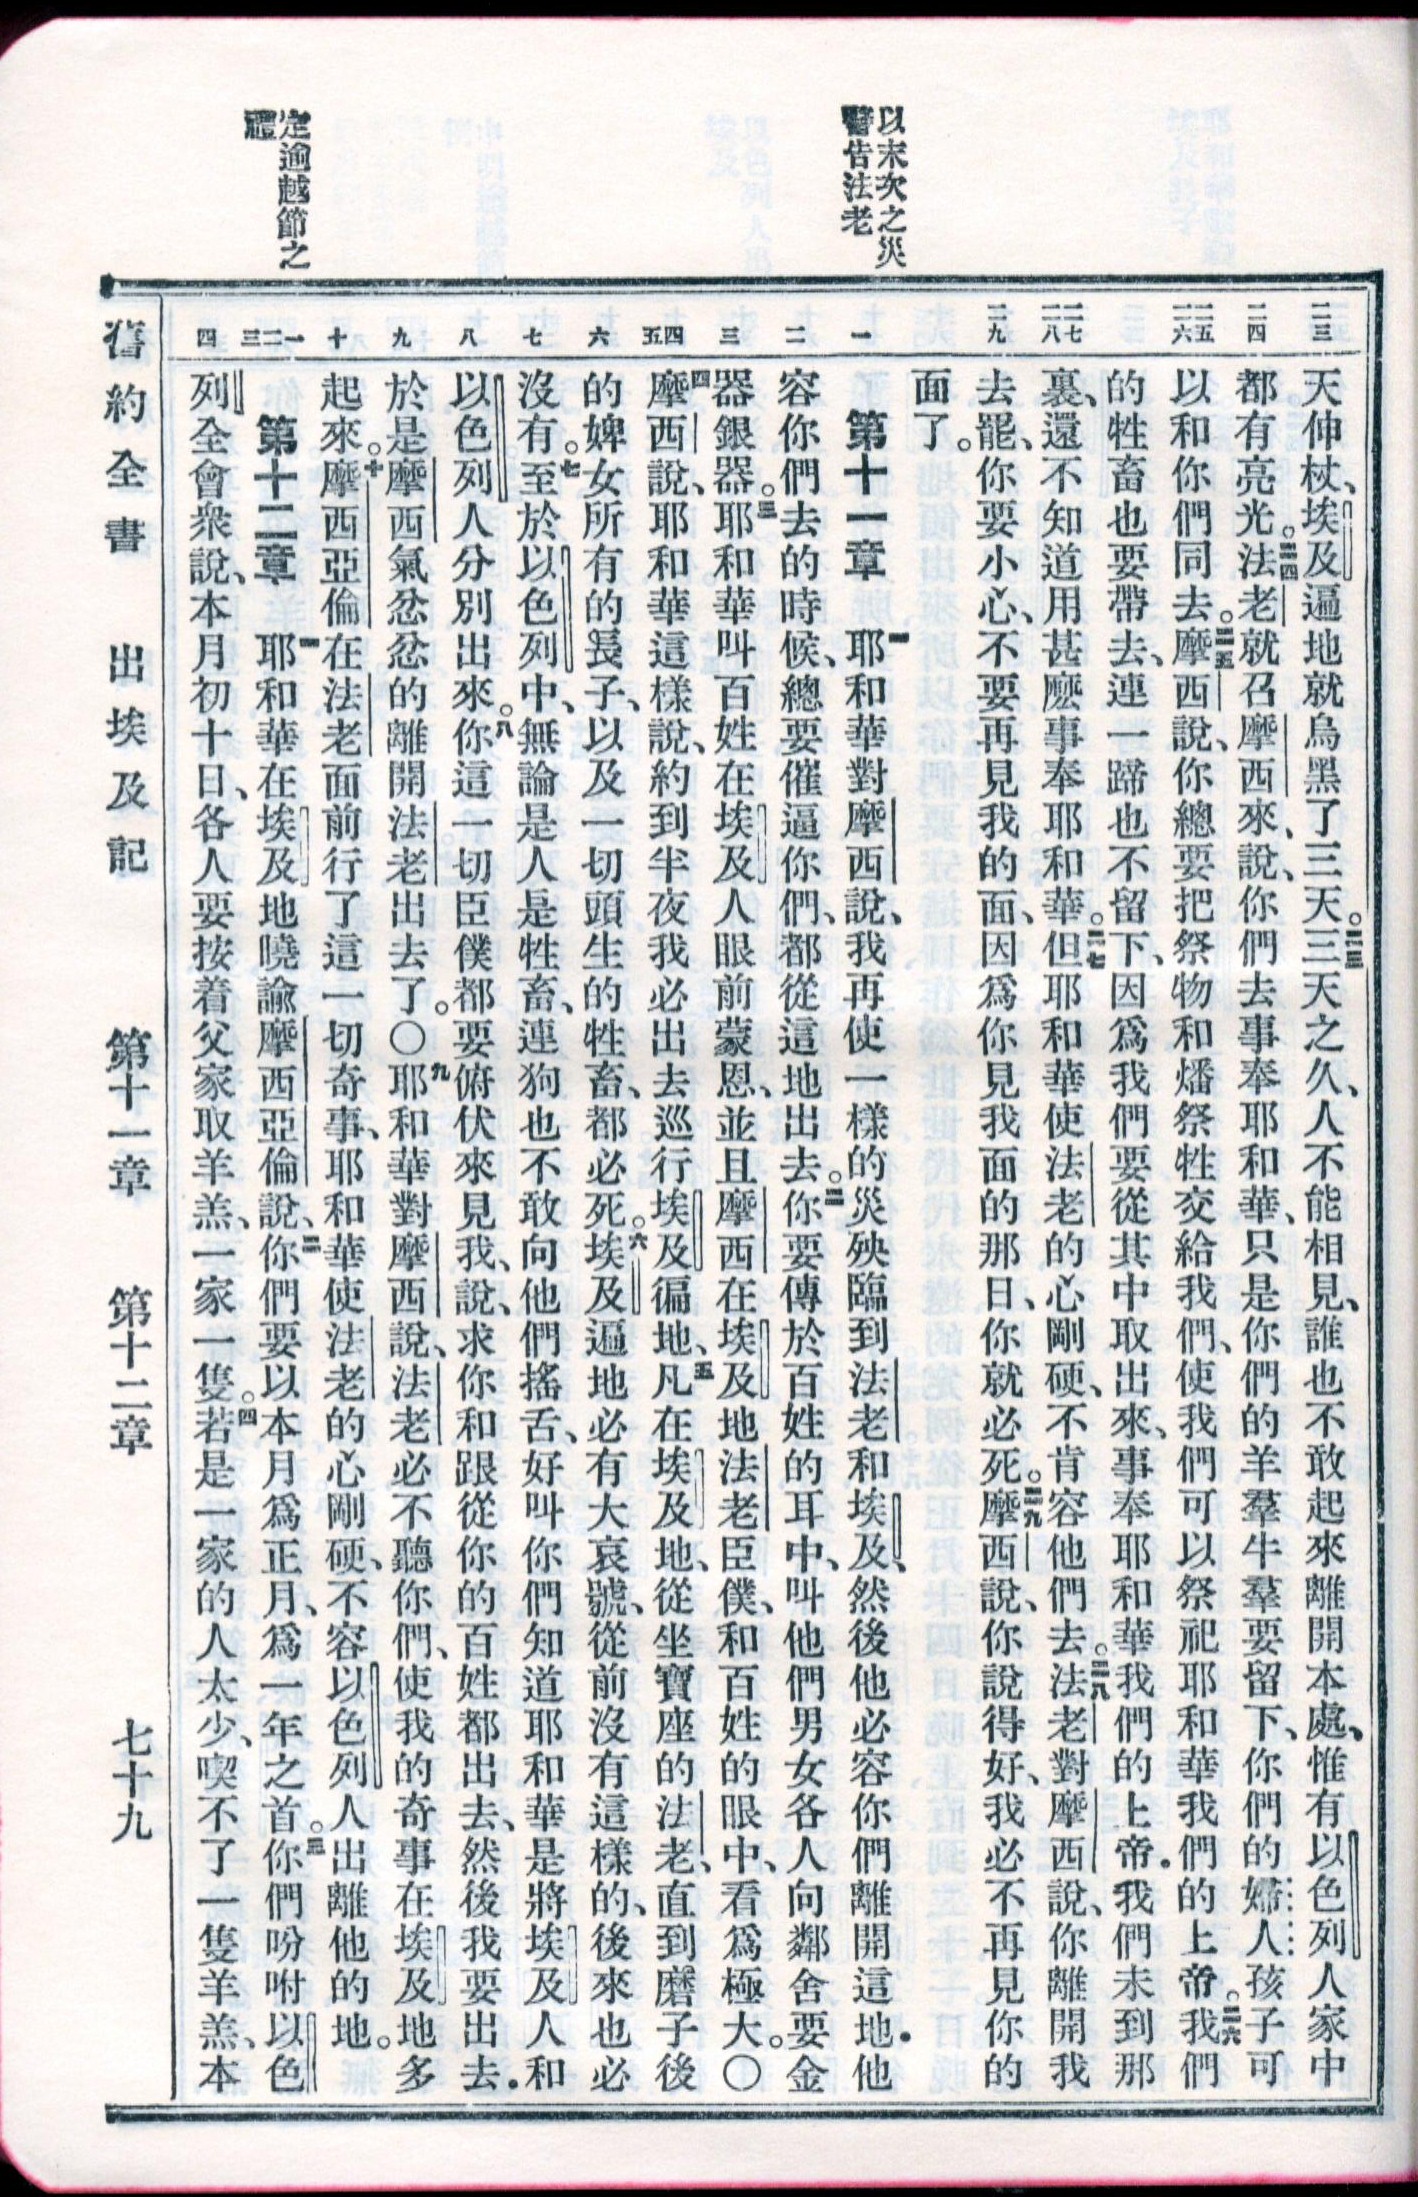 以末次之災
警告法老
定逾越節之
禮
二三
二四
二五 二六
二七 二八
二九
一
二
三
四 五
六
七
八
九
十
一 二 三
四
天伸杖、埃及遍地就烏黑了三天。二三三天之久、人不能相見、誰也不敢起來離開本處、惟有以色列人家中
都有亮光。二四法老就召摩西來、說、你們去事奉耶和華、只是你們的羊羣牛羣要留下、你們的婦人孩子可
以和你們同去。二五摩西說、你總要把祭物和燔祭牲交給我們、使我們可以祭祀耶和華我們的上帝。二六我們
的牲畜也要帶去、連一蹄也不留下、因爲我們要從其中取出來、事奉耶和華我們的上帝．我們未到那
裏、還不知道用甚麽事奉耶和華。二七但耶和華使法老的心剛硬、不肯容他們去。二八法老對摩西說、你離開我
去罷、你要小心、不要再見我的面、因爲你見我面的那日、你就必死。二九摩西說、你說得好、我必不再見你的
面了。
第十一章　一耶和華對摩西說、我再使一樣的災殃臨到法老和埃及、然後他必容你們離開這地．他
容你們去的時候、總要催逼你們、都從這地出去。二你要傳於百姓的耳中、叫他們男女各人向鄰舍要金
器銀器。三耶和華叫百姓在埃及人眼前蒙恩、並且摩西在埃及地法老臣僕、和百姓的眼中、看爲極大。〇
四摩西說、耶和華這樣說、約到半夜我必出去巡行埃及徧地、五凡在埃及地、從坐寶座的法老、直到磨子後
的婢女所有的長子、以及一切頭生的牲畜、都必死。六埃及遍地必有大哀號、從前沒有這樣的、後來也必
沒有。七至於以色列中、無論是人是牲畜、連狗也不敢向他們搖舌、好叫你們知道耶和華是將埃及人和
以色列人分別出來。八你這一切臣僕都要俯伏來見我、說、求你和跟從你的百姓都出去、然後我要出去．
於是摩西氣忿忿的離開法老出去了。〇九耶和華對摩西說、法老必不聽你們、使我的奇事在埃及地多
起來。十摩西亞倫在法老面前行了這一切奇事、耶和華使法老的心剛硬、不容以色列人出離他的地。
第十二章　一耶和華在埃及地曉諭摩西亞倫說、二你們要以本月爲正月、爲一年之首。三你們吩咐以色
列全會衆說、本月初十日、各人要按着父家取羊羔、一家一隻。四若是一家的人太少、喫不了一隻羊羔、本
舊約全書　出埃及記　第十一章　第十二章　七十九